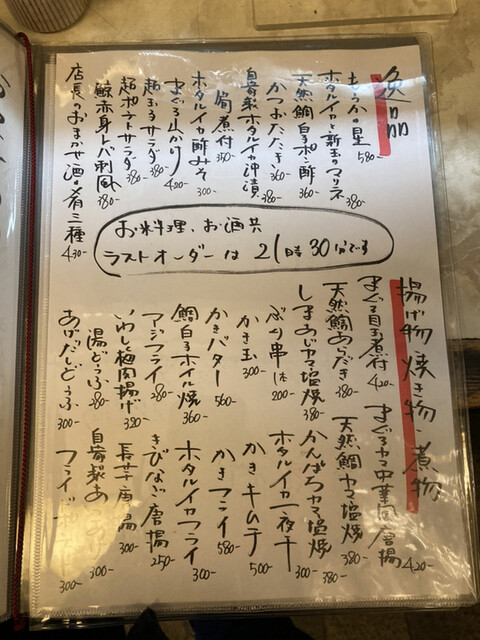 逸品
もうかの星 580-
ホタルイカと新玉のマリネ 380-
天然鯛白子ポン酢 360-
かつおたたき 380-
自家製ホタルイカ沖漬 380-
筍煮付 350-
ホタルイカ酢みそ 300-
まぐろ山かけ 420-
サラダ 380-
超ポテトサラダ 380-
鯨赤身トバ刺風 380-
店長のおまかせ酒の肴三種 430-
お料理、お酒共
ラストオーダーは21時30分です
揚げ物 焼き物 煮物
まぐろ目玉煮付 420-
天然鯛あらだき 380-
しまあじカマ塩焼 380-
ぶり串1本 200-
かき玉 300-
かきバター 560-
鯛白子ホイル焼 360-
アジフライ 280-
いわし梅肉揚げ 320-
湯どうふ 280-
あげだしどうふ 300-
まぐろカマ中華風唐揚 420-
天然鯛カマ塩焼 380-
かんぱちカマ塩焼 380-
ホタルイカ一夜干 300-
かきキムチ 500-
かきフライ 580-
ホタルイカフライ 300-
きびない唐揚 250-
長芋唐揚 300-
自家製あつ 300-
フライドポテト 300-